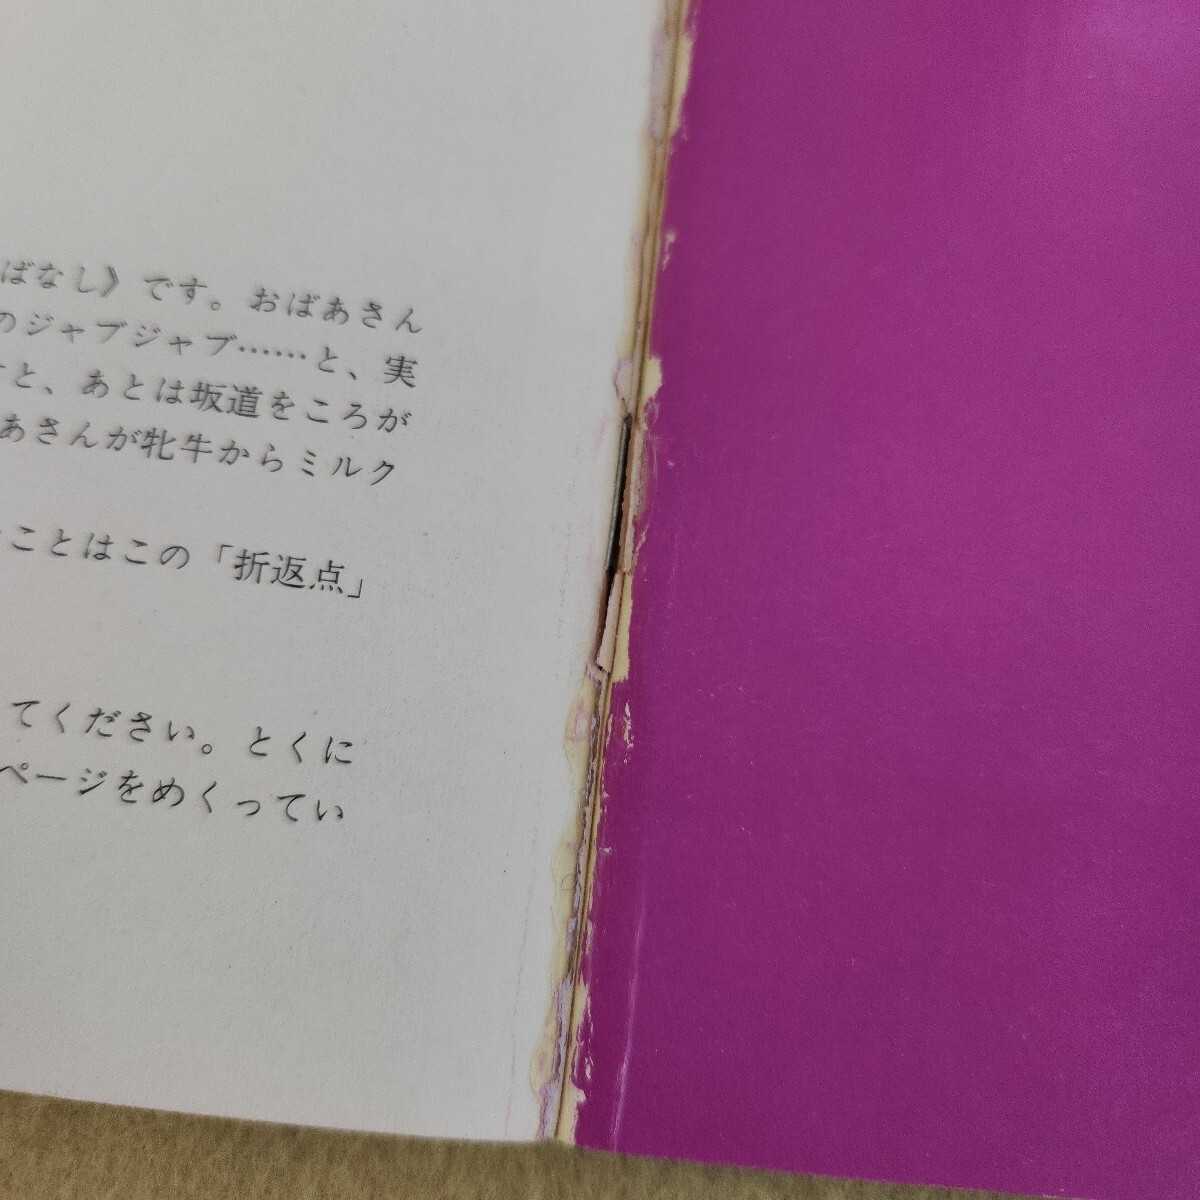 ばなし》です。おばあさん
のジャブジャブ……と、実
と、あとは坂道をころが
あさんが牝牛からミルク
ことはこの「折返点」
てください。とくに
ページをめくってい